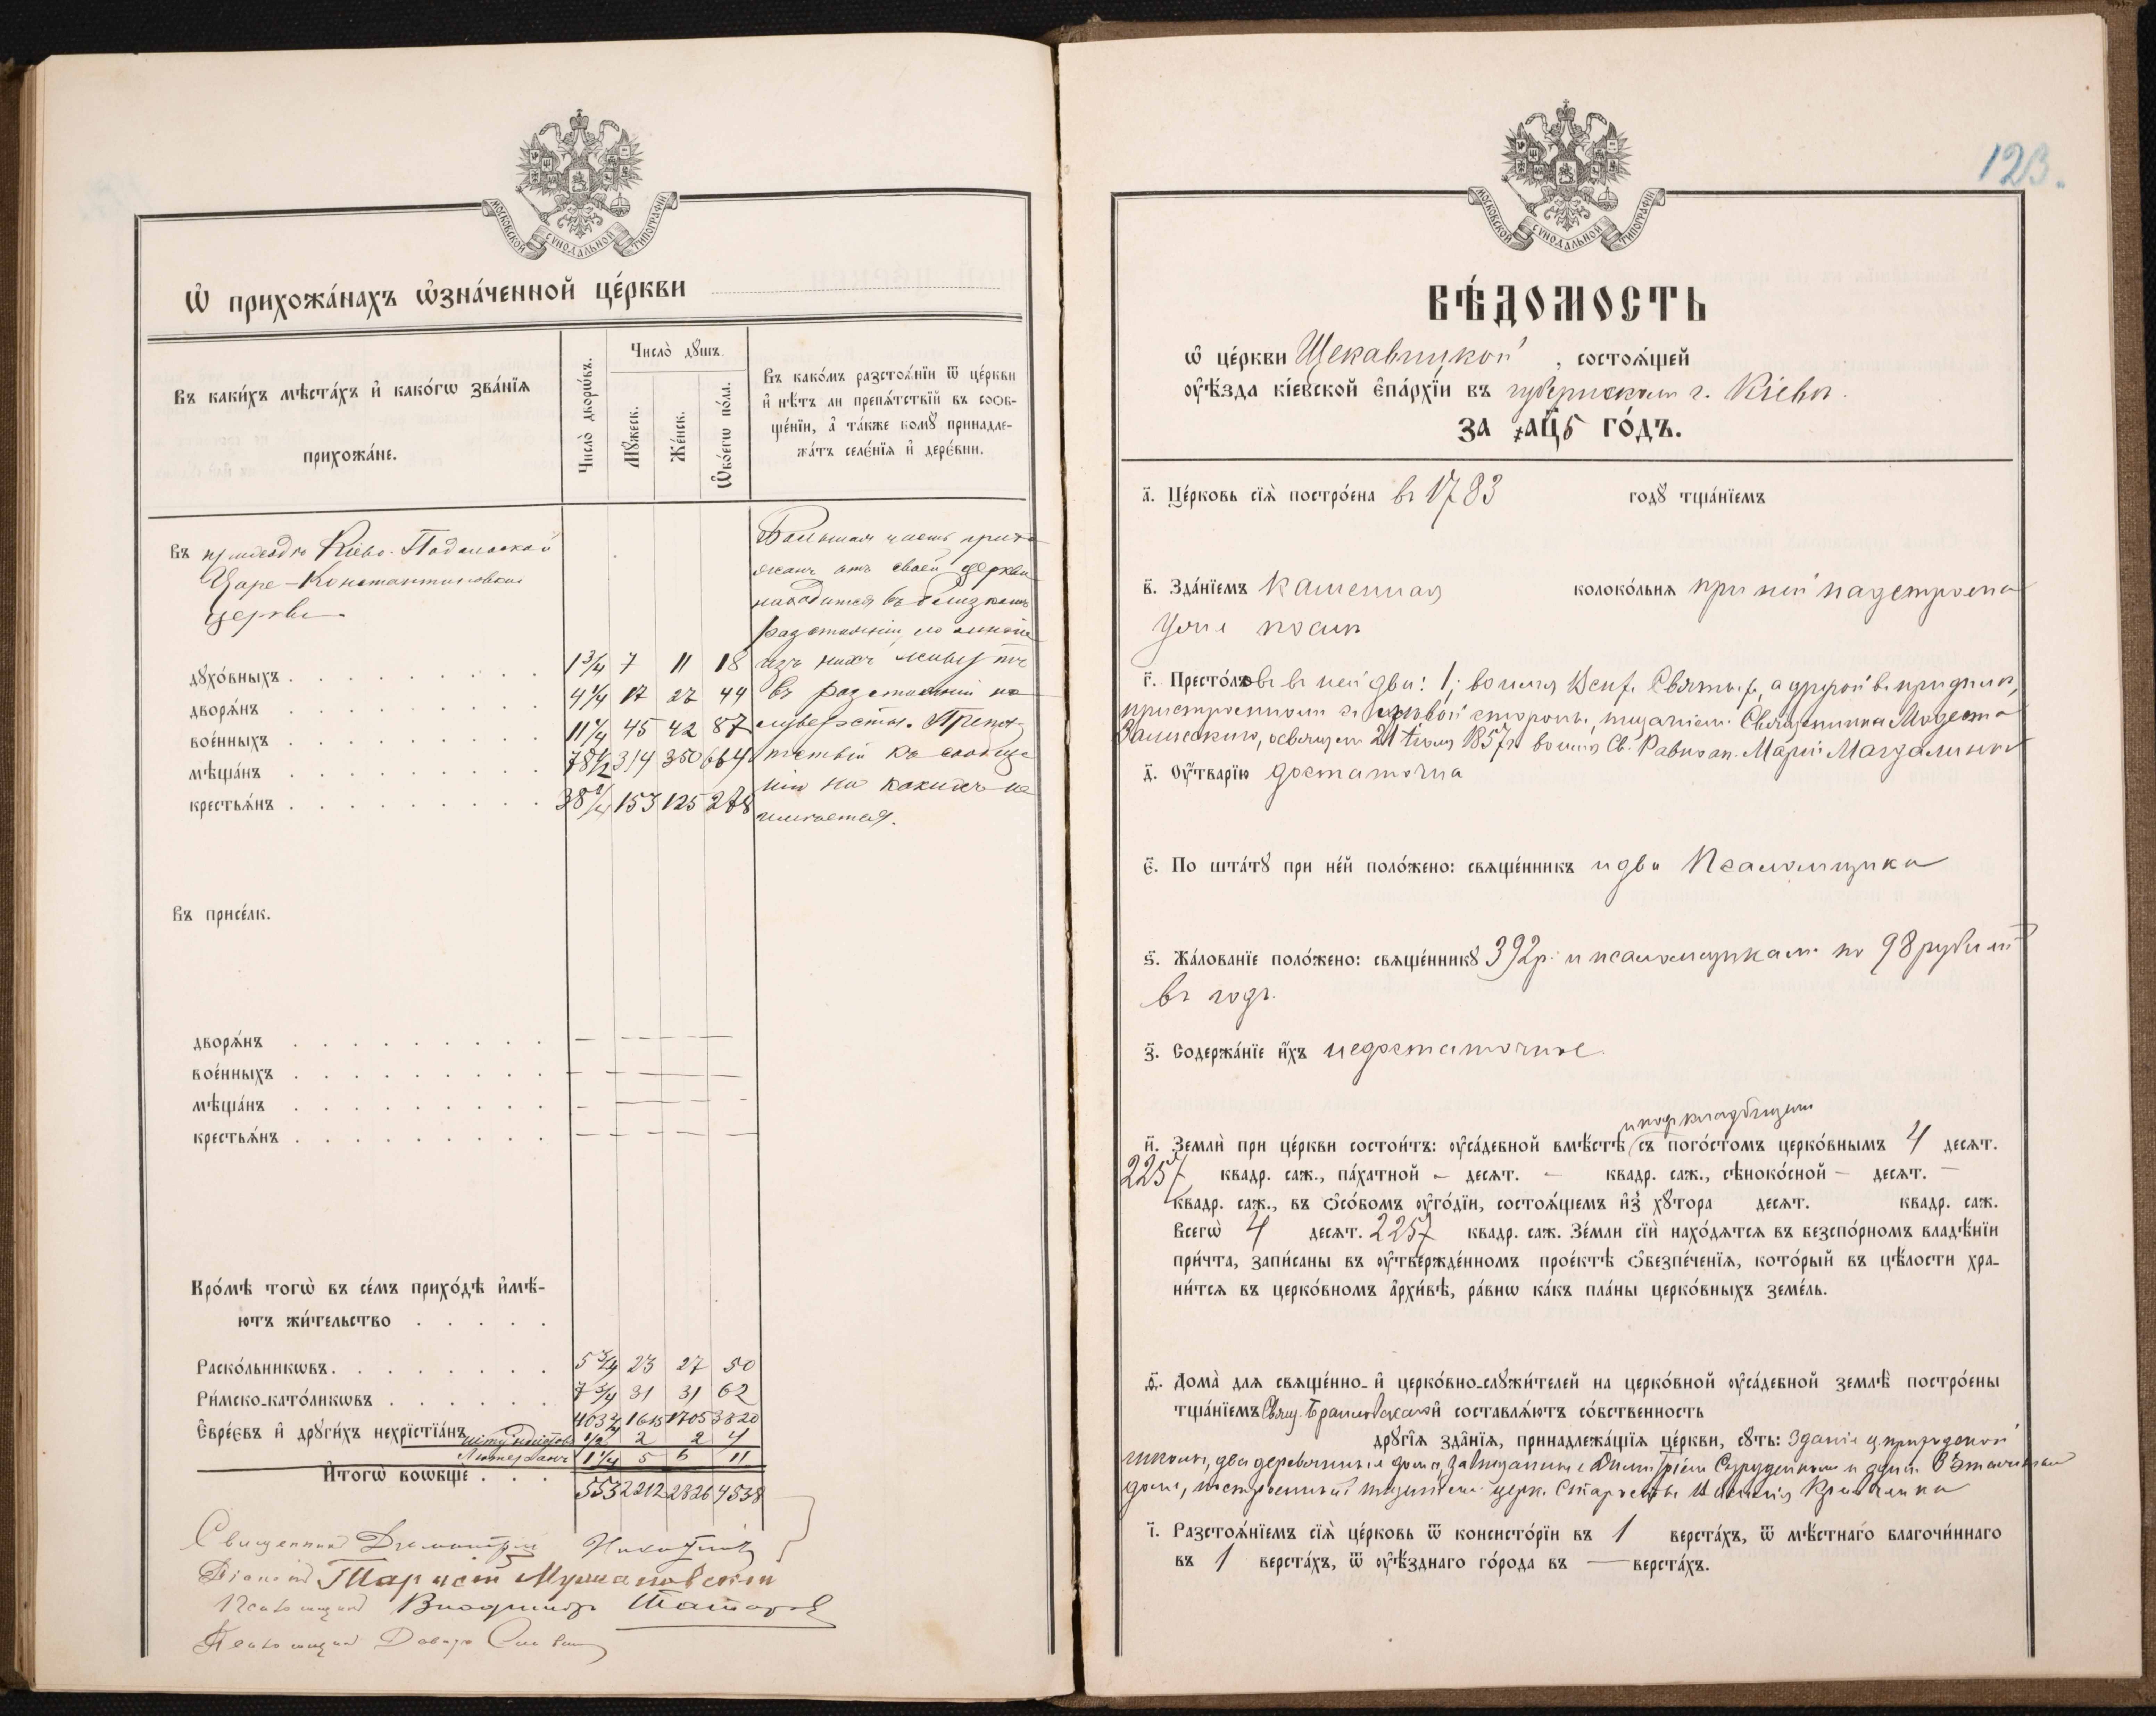 МОСКОВСКОЙ СУНОДАЛЬНОЙ ТИПОГРАФІИ
Ѽ прихожа́нахъ ѡ҆зна́ченной це́ркви
Въ каки́хъ мѣста́хъ и҆ како́гѡ зва́нїѧ
прихожа́не.
Число̀ дворѡ́въ.
Число̀ дꙋ́шъ.
Мꙋ́жеск.
Же́нск.
Ѻ҆бо́егѡ по́ла.
Въ како́мъ разстоѧ́нїи ѿ це́ркви
и҆ нѣ́тъ ли препѧ́тствїй въ сооб-
ще́нїи, а҆ та́кже комꙋ̀ принадле-
жа́тъ селе́нїѧ и҆ дере́вни.
Въ приходѣ Кіево-Подольской
Царе-Константиновской
церкви
Большая часть прихо
жанъ отъ своей церкви
находится въ близкомъ
разстояніи, но многіе
изъ нихъ живутъ
въ разстояніи
версты. Препят-
ствій къ сообще
нію ни какихъ не
имѣется.
дꙋхо́вныхъ . . . 1 3/4 7 11 18
дворѧ́нъ . . . 4 1/4 17 27 44
вое́нныхъ . . . 11 1/4 45 42 87
мѣща́нъ . . . 78 1/2 314 350 664
крестьѧ́нъ . . . 38 1/4 153 125 278
Въ присе́лк.
дворѧ́нъ . . . — — — —
вое́нныхъ . . . — — — —
мѣща́нъ . . . — — — —
крестьѧ́нъ . . . — — — —
Кро́мѣ тогѡ̀ въ се́мъ прихо́дѣ и҆мѣ́-
ютъ жи́тельство . . . . .
Раско́льникѡвъ . . . 5 3/4 23 27 50
Ри́мско-като́ликѡвъ . . . 7 3/4 31 31 62
Є҆вре́євъ и҆ дрꙋги́хъ нехрїстїа́нъ 403 3/4 1615 1705 3320
Штундистовъ 1/2 2 2 4
Лютеранъ 1 1/4 5 6 11
И҆тогѡ̀ вообщѐ . . . 553 2212 2326 4538
Священникъ Димитрій
Діаконъ
Псаломщикъ Владиміръ
Псаломщикъ
123.
МОСКОВСКОЙ СУНОДАЛЬНОЙ ТИПОГРАФІИ
ВѢ́ДОМОСТЬ
ѡ҆ це́ркви Щекавицкой, состоѧ́щей
ᲂу҆ѣ́зда кі́евской є҆па́рхїи въ губернскомъ г. Кіевѣ.
за ҂аці5 го́дъ.
а҃. Це́рковь сїѧ̀ постро́ена въ 1783 годꙋ̀ тща́нїемъ
в҃. Зда́нїемъ каменная колоко́льнѧ при ней надстроена
г҃. Престо́ловъ въ ней два: 1й во имя Всѣхъ Святыхъ, а другой въ придѣлѣ,
пристроенномъ съ правой стороны, тщаніемъ Священника Модеста
освященъ 21 1857 г. во имя Св. Равноап. Маріи Магдалины
д҃. Оу҆́тварїю достаточна
є҃. По шта́тꙋ при не́й поло́жено: свѧще́нникъ и два Псаломщика
ѕ҃. Жа́лованїе поло́жено: свѧще́нникꙋ 392 р. и псаломщикамъ по 98 рублей
въ годъ.
з҃. Содержа́нїе и҆́хъ недостаточное.
и подъ кладбищемъ
и҃. Землѝ при це́ркви состои́тъ: ᲂу҆са́дебной вмѣ́стѣ съ пого́стомъ церко́внымъ 4 десѧт.
2257 квадр. саж., па́хатной — десѧт. — квадр. саж., сѣноко́сной — десѧт. —
квадр. саж., въ ѻ҆со́бомъ ᲂу҆го́дїи, состоѧ́щемъ и҆з̾ хꙋ́тора десѧт. квадр. саж.
Всегѡ̀ 4 десѧт. 2257 квадр. саж. Зе́мли сїѝ нахо́дѧтсѧ въ безспо́рномъ владѣ́нїи
при́чта, запи́саны въ ᲂу҆твержде́нномъ прое́ктѣ ѻ҆безпе́ченїѧ, кото́рый въ цѣ́лости хра-
ни́тсѧ въ церко́вномъ а҆рхи́вѣ, ра́внѡ ка́къ пла́ны церко́вныхъ земе́ль.
ѳ҃. Дома̀ длѧ свѧще́нно- и҆ церко́вно-слꙋжи́телей на церко́вной ᲂу҆са́дебной землѣ̀ постро́ены
тща́нїемъ Свящ. и҆ составлѧ́ютъ со́бственность
дрꙋгі̑ѧ зда̑нїѧ, принадлежа́щїѧ це́ркви, сꙋ́ть: зданіе ц. приходской
школы, два деревянные дома, завѣщанные Димитріемъ и одинъ
домъ, построенный тщаніемъ церк. Старосты
і҃. Разстоѧ́нїемъ сїѧ̀ це́рковь ѿ консисто́рїи въ 1 верста́хъ, ѿ мѣ́стнагѡ благочи́ннагѡ
въ 1 верста́хъ, ѿ ᲂу҆ѣ́зднагѡ го́рода въ — верста́хъ.